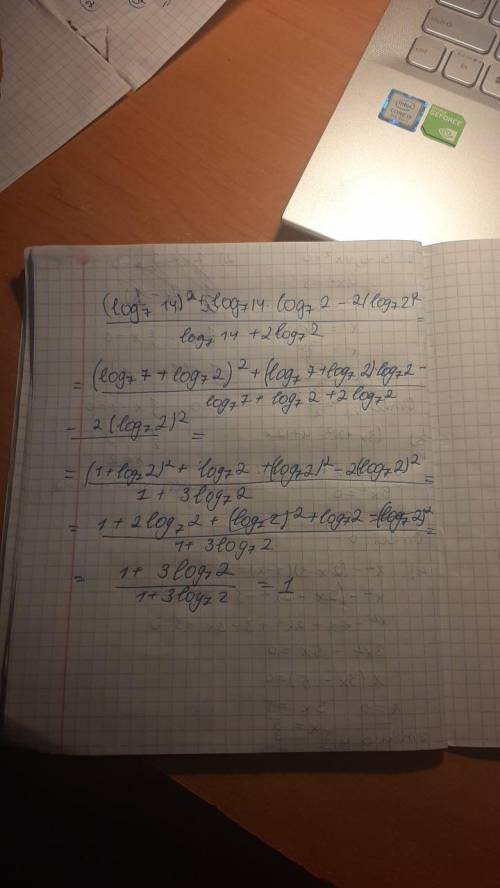 (log₇ 14)² + log₇14 · log₇ 2 − 2(log₇2)²
log₇ 14 + 2log₇2
=
= (log₇7 + log₇2)² + (log₇7 + log₇2)log₇2 −
log₇7 + log₇2 + 2log₇2
− 2(log₇2)² =
= (1+log₇2)² + log₇2 + (log₇2)² − 2(log₇2)² =
1 + 3log₇2
= 1 + 2log₇2 + (log₇2)² + log₇2 − (log₇2)² =
1 + 3log₇2
= 1 + 3log₇2 = 1
1 + 3log₇2
intel
CORE i5
GEFORCE